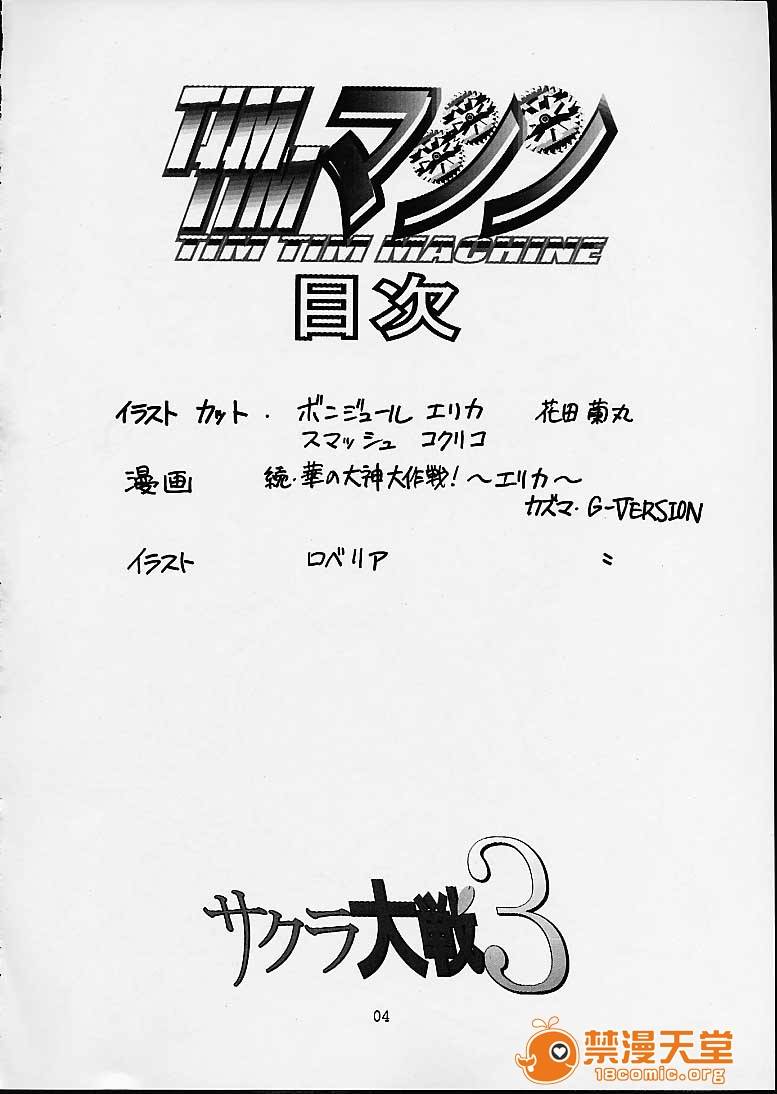 TIM-マシン
TIM
TIM TIM MACHINE
目次
イラスト カット・ ボンジュール エリカ 花田 蘭丸
スマッシュ コクリコ
漫画 続・華の大神大作戦!~エリカ~
カズマ・G-VERSION
イラスト ロベリア 〃
サクラ大戦3
04
禁漫天堂
18comic.org